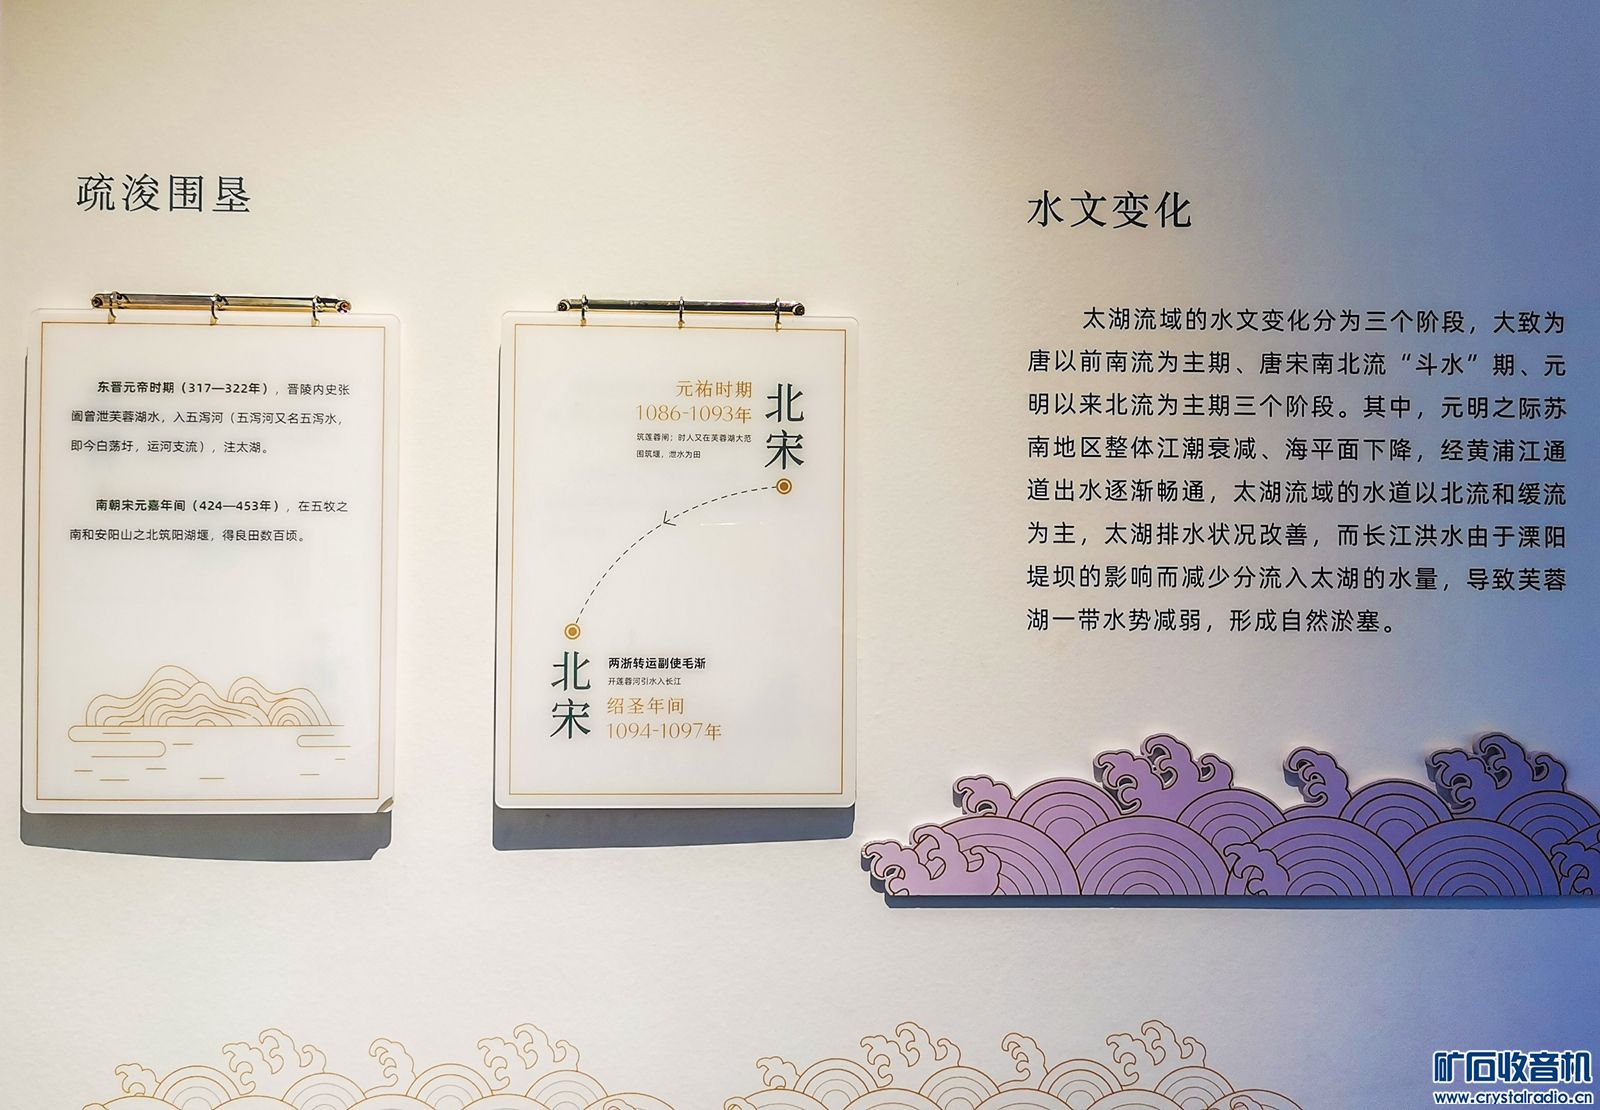 疏浚围垦
东晋元帝时期（317—322年），晋陵内史张
闿曾泄芙蓉湖水，入五泻河（五泻河又名五泻水，
即今白荡圩，运河支流），注太湖。
南朝宋元嘉年间（424—453年），在五牧之
南和安阳山之北筑阳湖堰，得良田数百顷。
北宋
元祐时期
1086-1093年
筑莲蓉闸；时人又在芙蓉湖大范
围筑堰，泄水为田
北宋
两浙转运副使毛渐
开莲蓉河引水入长江
绍圣年间
1094-1097年
水文变化
太湖流域的水文变化分为三个阶段，大致为
唐以前南流为主期、唐宋南北流“斗水”期、元
明以来北流为主期三个阶段。其中，元明之际苏
南地区整体江潮衰减、海平面下降，经黄浦江通
道出水逐渐畅通，太湖流域的水道以北流和缓流
为主，太湖排水状况改善，而长江洪水由于溧阳
堤坝的影响而减少分流入太湖的水量，导致芙蓉
湖一带水势减弱，形成自然淤塞。
矿石收音机
www.crystalradio.cn